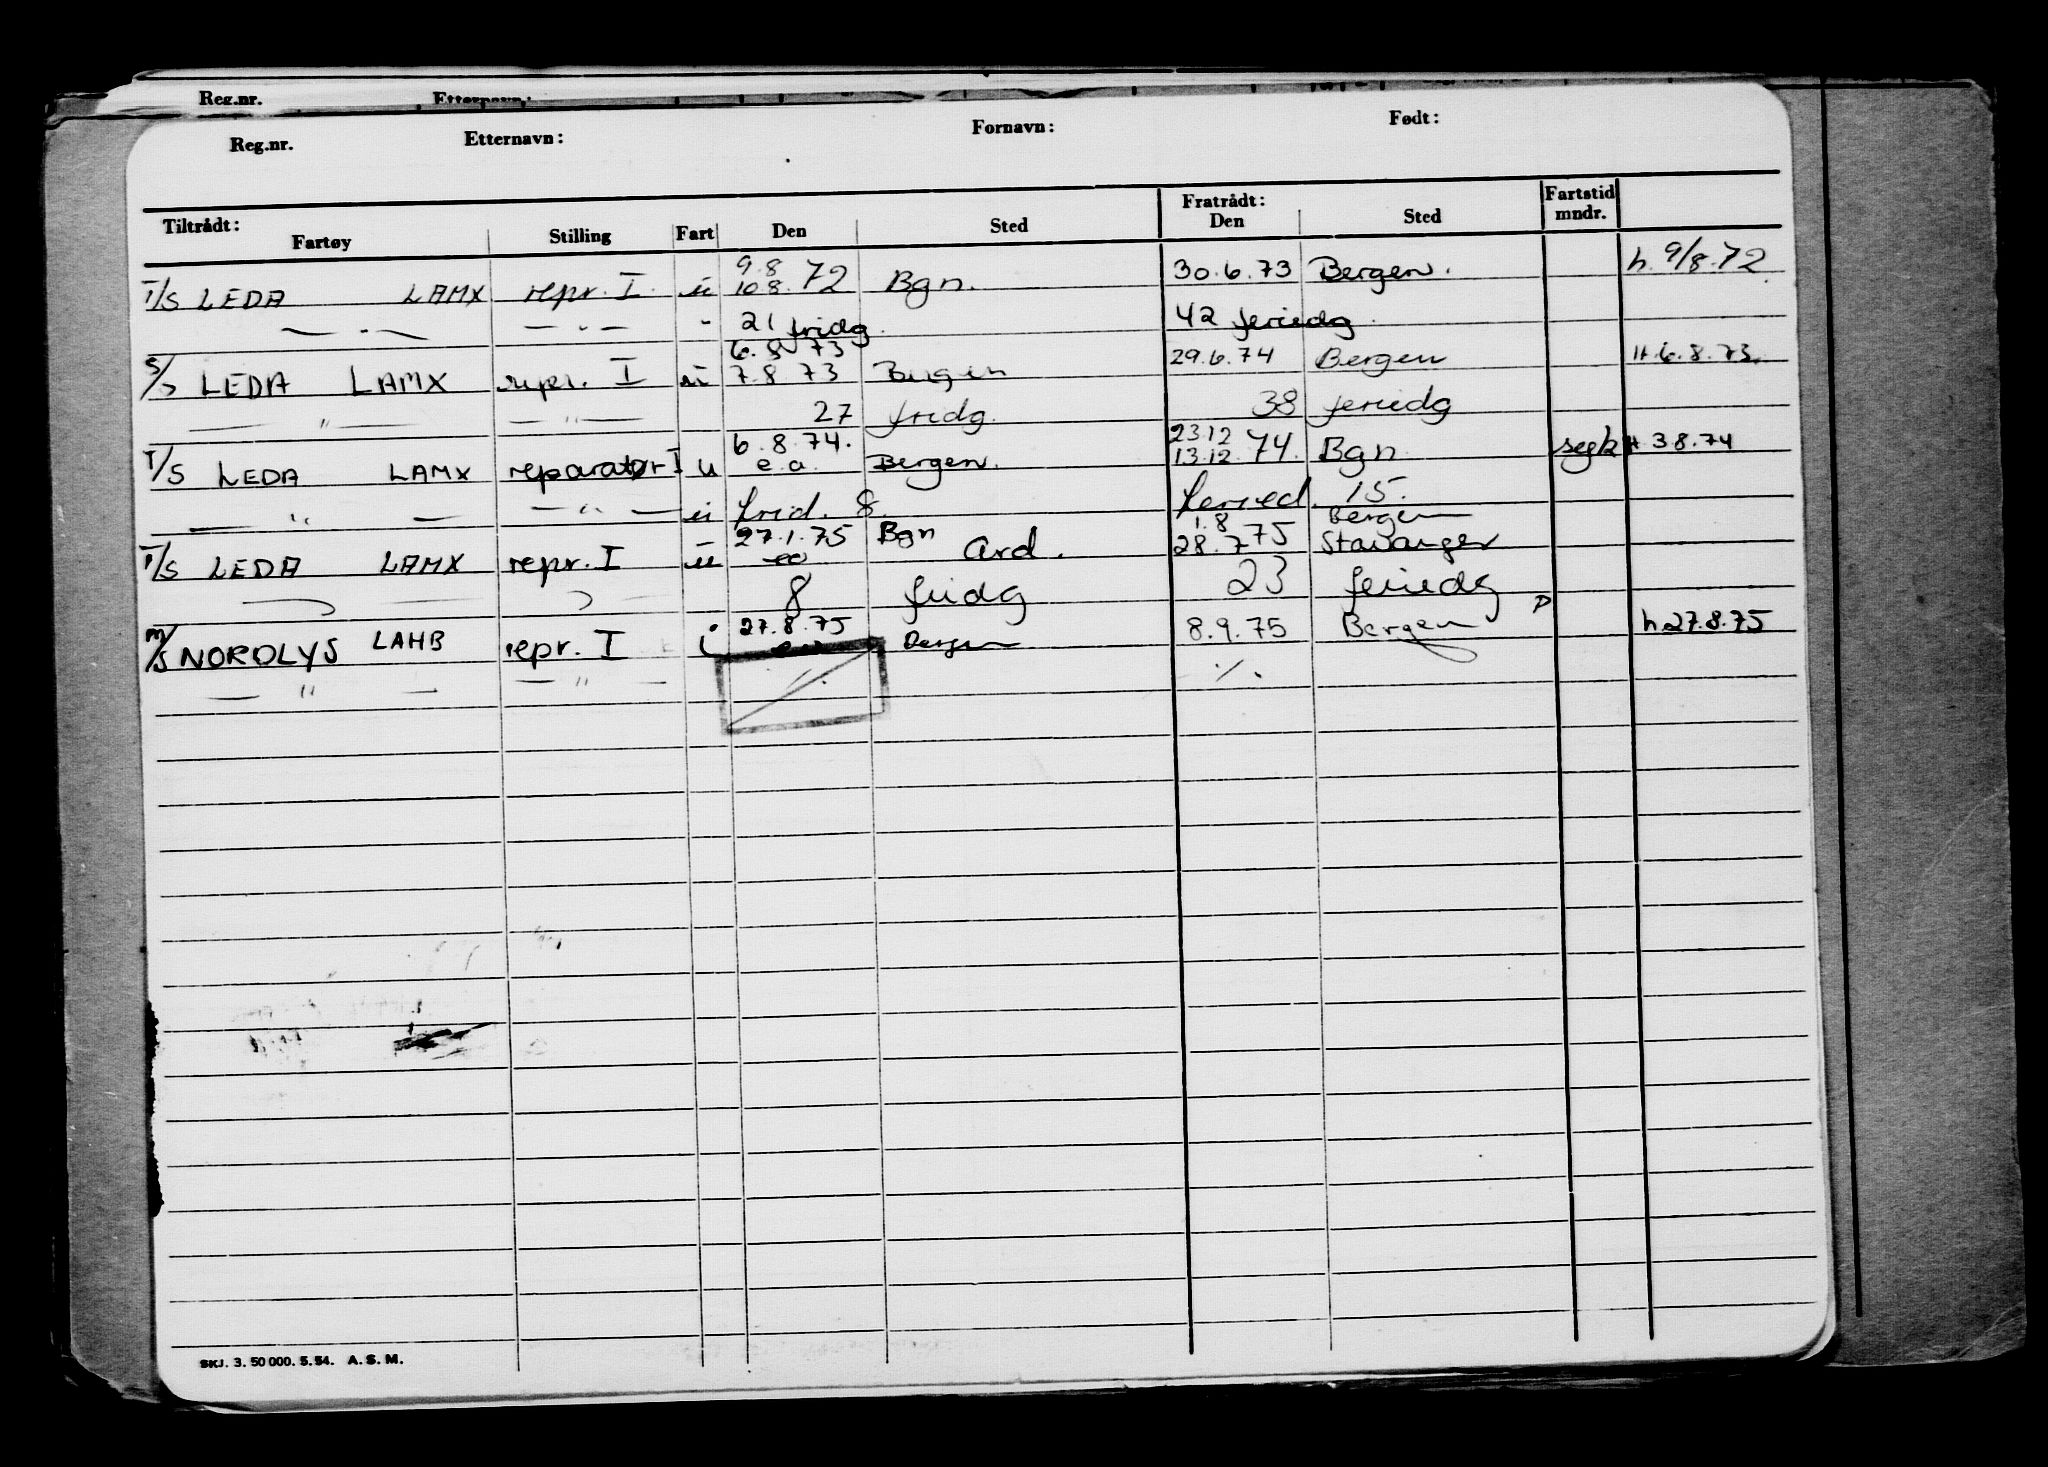 Reg.nr. Etternavn:
Reg.nr. Etternavn: Fornavn: Født:
Tiltrådt: Fratrådt: Fartstid
Fartøy Stilling Fart Den Sted Den Sted mndr.
9.8
T/S LEDA LAMX repr. I u 10.8. 72 Bgn. 30.6.73 Bergen. h. 9/8.72
— " — — " — " 21 fridg. 42 feriedg.
6.8 73
S/S LEDA LAMX repr. I u 7.8.73 Bergen 29.6.74 Bergen H. 6.8.73.
— " — — " — 27 fridg. 38 feriedg
6.8.74. 23.12
T/S LEDA LAMX reparatør I u e.a. Bergen. 13.12. 74. Bgn H 3.8.74
— " — — " — u frid. 8. feried. 15.
27.1.75 Bgn 1.8 Bergen
T/S LEDA LAMX repr. I u ea Ard. 28.7 75 Stavanger
8 fridg 23 feriedg
27.8.75
M/S NORDLYS LAHB repr. I i ea Bergen 8.9.75 Bergen P h.27.8.75
— " — — " — ./. ./.
SKJ. 3. 50 000. 5.54. A.S.M.